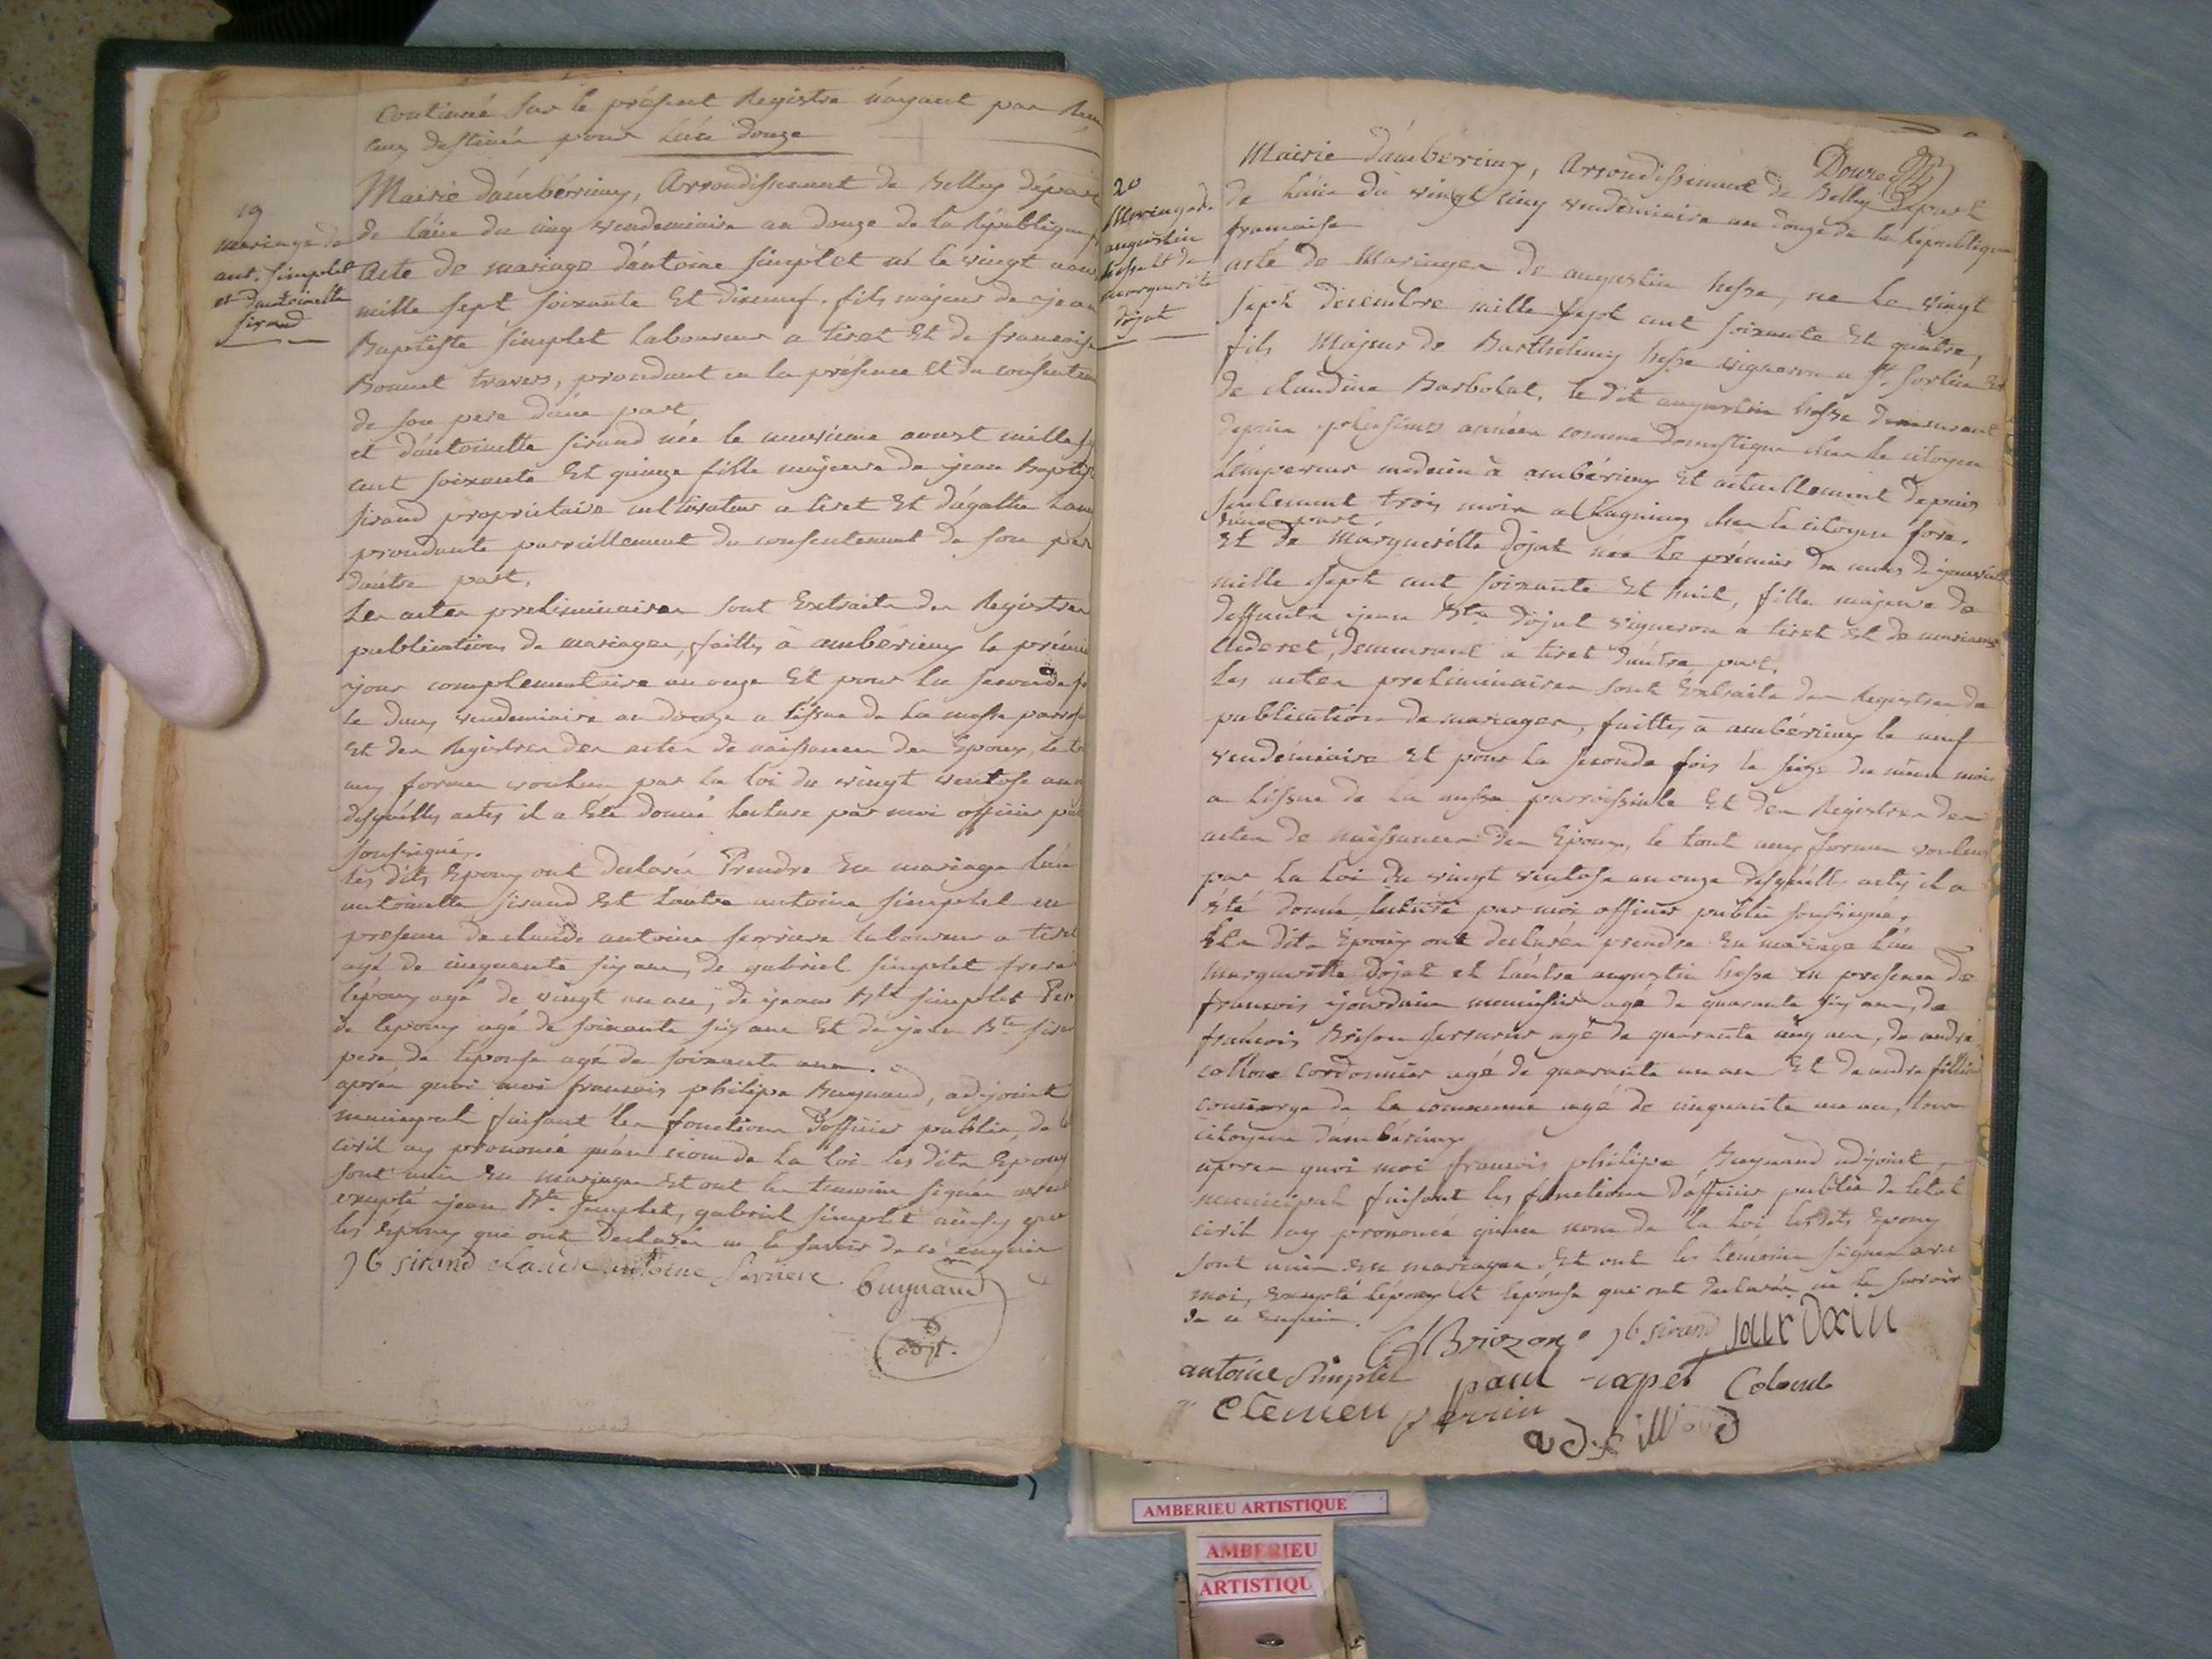 Continué sur le présent Registre n'ayant pas
ceux destinés pour L'an douze
19
mariage de
ant. simplet
et d'antoinette
sirand
Mairie d'ambérieux, Arrondissement de Belley départ
de L'ain du cinq vendemiaire an douze de la République
Acte de mariage d'antoine simplet né le vingt
mille sept soixante Et dixneuf. fils majeur de jean
Baptiste simplet laboureur a tiret Et de francoise
Bonnet travers, procedant en la présence Et du consentem
de son pere d'une part,
et d'antoinette sirand née le aoust mille
cent soixante Et quinze fille majeure de jean Baptis
sirand propriétaire cultivateur a tiret Et d'agathe
procedante pareillement du consentement de son per
d'autre part,
Les actes preliminaires sont Extraits des Registres
publications de mariages, faittes à ambérieux le premie
jour complementaire an onze Et pour la seconde
le deux vendemiaire an douze a L'issue de La messe parroi
Et des Registres des actes de naissances des Epoux, le
aux formes voulues par la loi du vingt ventose an
desquelles actes il a Eté donné lecture par moi officier pu
soussigné.
les dits Epoux ont declaré Prendre En mariage l'un
antoinette sirand Et l'autre antoine simplet en
presence de claude antoine serriere laboureur a tiret
agé de cinquante six ans, de gabriel simplet frere
l'époux agé de vingt un an, de jean Bte simplet Per
de lepoux agé de soixante six ans Et de jean Bte sira
pere de l'épouse agé de soixante ans.
aprés quoi moi francois philipe Buynand, adjoint
municipal faisant les fonctions d'officier public, de l
civil ay prononcé qu'au nom de la loi les dits Epoux
sont unis En mariage Et ont les temoins signés avec
excepté jean Bte. simplet, gabriel simplet ainsy que
les Epoux qui ont Declarés ne le savoir de ce enquis
jb sirand claude antoine serriere Buynand
adjt.
Douze
20
Mariage de
augustin
hesse et de
marguerite
dojat
Mairie d'ambérieux, Arrondissement de Belley départ
de L'ain du vingt cinq vendémiaire an douze de la République
francaise
acte de Mariages de augustin hesse, né le vingt
sept decembre mille sept cent soixante Et quatre,
fils Majeur de Barthelemy hesse vigneron a st. sorlin Et
de claudine Barbolat, le dit augustin hesse demeurant
depuis plusieurs années comme domestique chez le citoyen
L'empereur medecin à ambérieux Et actuellement depuis
seulement trois mois a Lagnieux chez le citoyen
d'une part,
Et de Margueritte dojat née le prémier du mois de
mille sept cent soixante Et huit, fille majeure de
deffunte jean Bte. dojat vigneron a tiret Et de
Aderet, demeurant a tiret d'autre part,
Les actes preliminaires sont Extraits des Registres de
publications de mariages, faittes à ambérieux le neuf
vendémiaire Et pour la seconde fois le seize du même mois
a L'issue de La messe parroissiale Et des Registres des
actes de naissances des Epoux, le tout aux formes voulues
par la Loi du vingt ventose an onze desquelles actes il a
été donné lecture par moi officier public soussigné,
Les dits Epoux ont declarés prendre En mariage l'un
Marguerite dojat et l'autre augustin hesse en presence de
francois jourdain menuisier agé de quarante six ans, de
francois Brison serrurier agé de quarante cinq ans, de andré
collon cordonnier agé de quarante un an Et de andre filliod
concierge de la commune agé de cinquante un an, tous
citoyens d'ambérieux
apres quoi moi francois philipe Buynand adjoint
municipal faisant les fonctions d'officier public de létat
civil ay prononcé qu'au nom de la loi lesdits Epoux
sont unis en mariages. Et ont les témoins signés avec
moi, Excepté l'époux et l'épouse qui ont declarés ne le savoir
de ce Enquis.
Briozon jb sirand Jourdain
antoine Simplet paul
clemen perrin